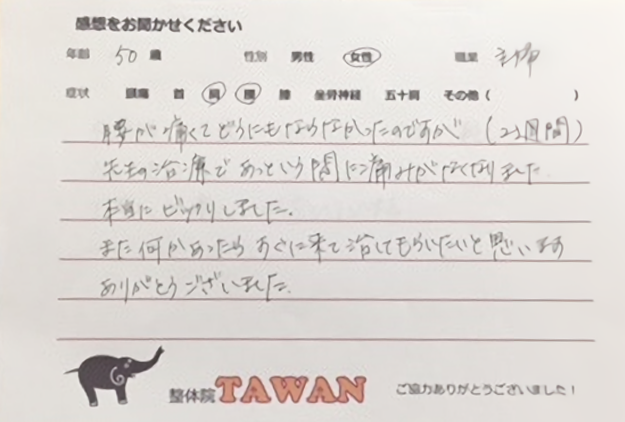 感想をお聞かせください
年齢 50 歳 性別 男性 女性 職業 主婦
症状 頭痛 首 肩 腰 膝 坐骨神経 五十肩 その他 ( )
腰が痛くてどうにもならなかったのですが (2週間)
先生の治療であっという間に痛みがなくなりました
本当にビックリしました。
また何かあったらすぐに来て治してもらいたいと思います
ありがとうございました。
整体院 TAWAN ご協力ありがとうございました!